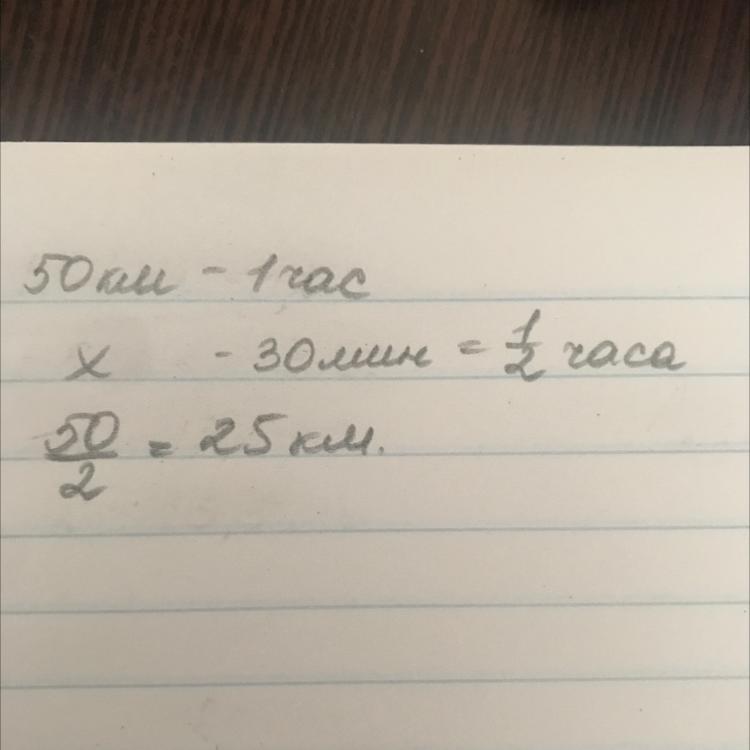 50км - 1 час
х - 30 мин = 1/2 часа
50/2 = 25 км.